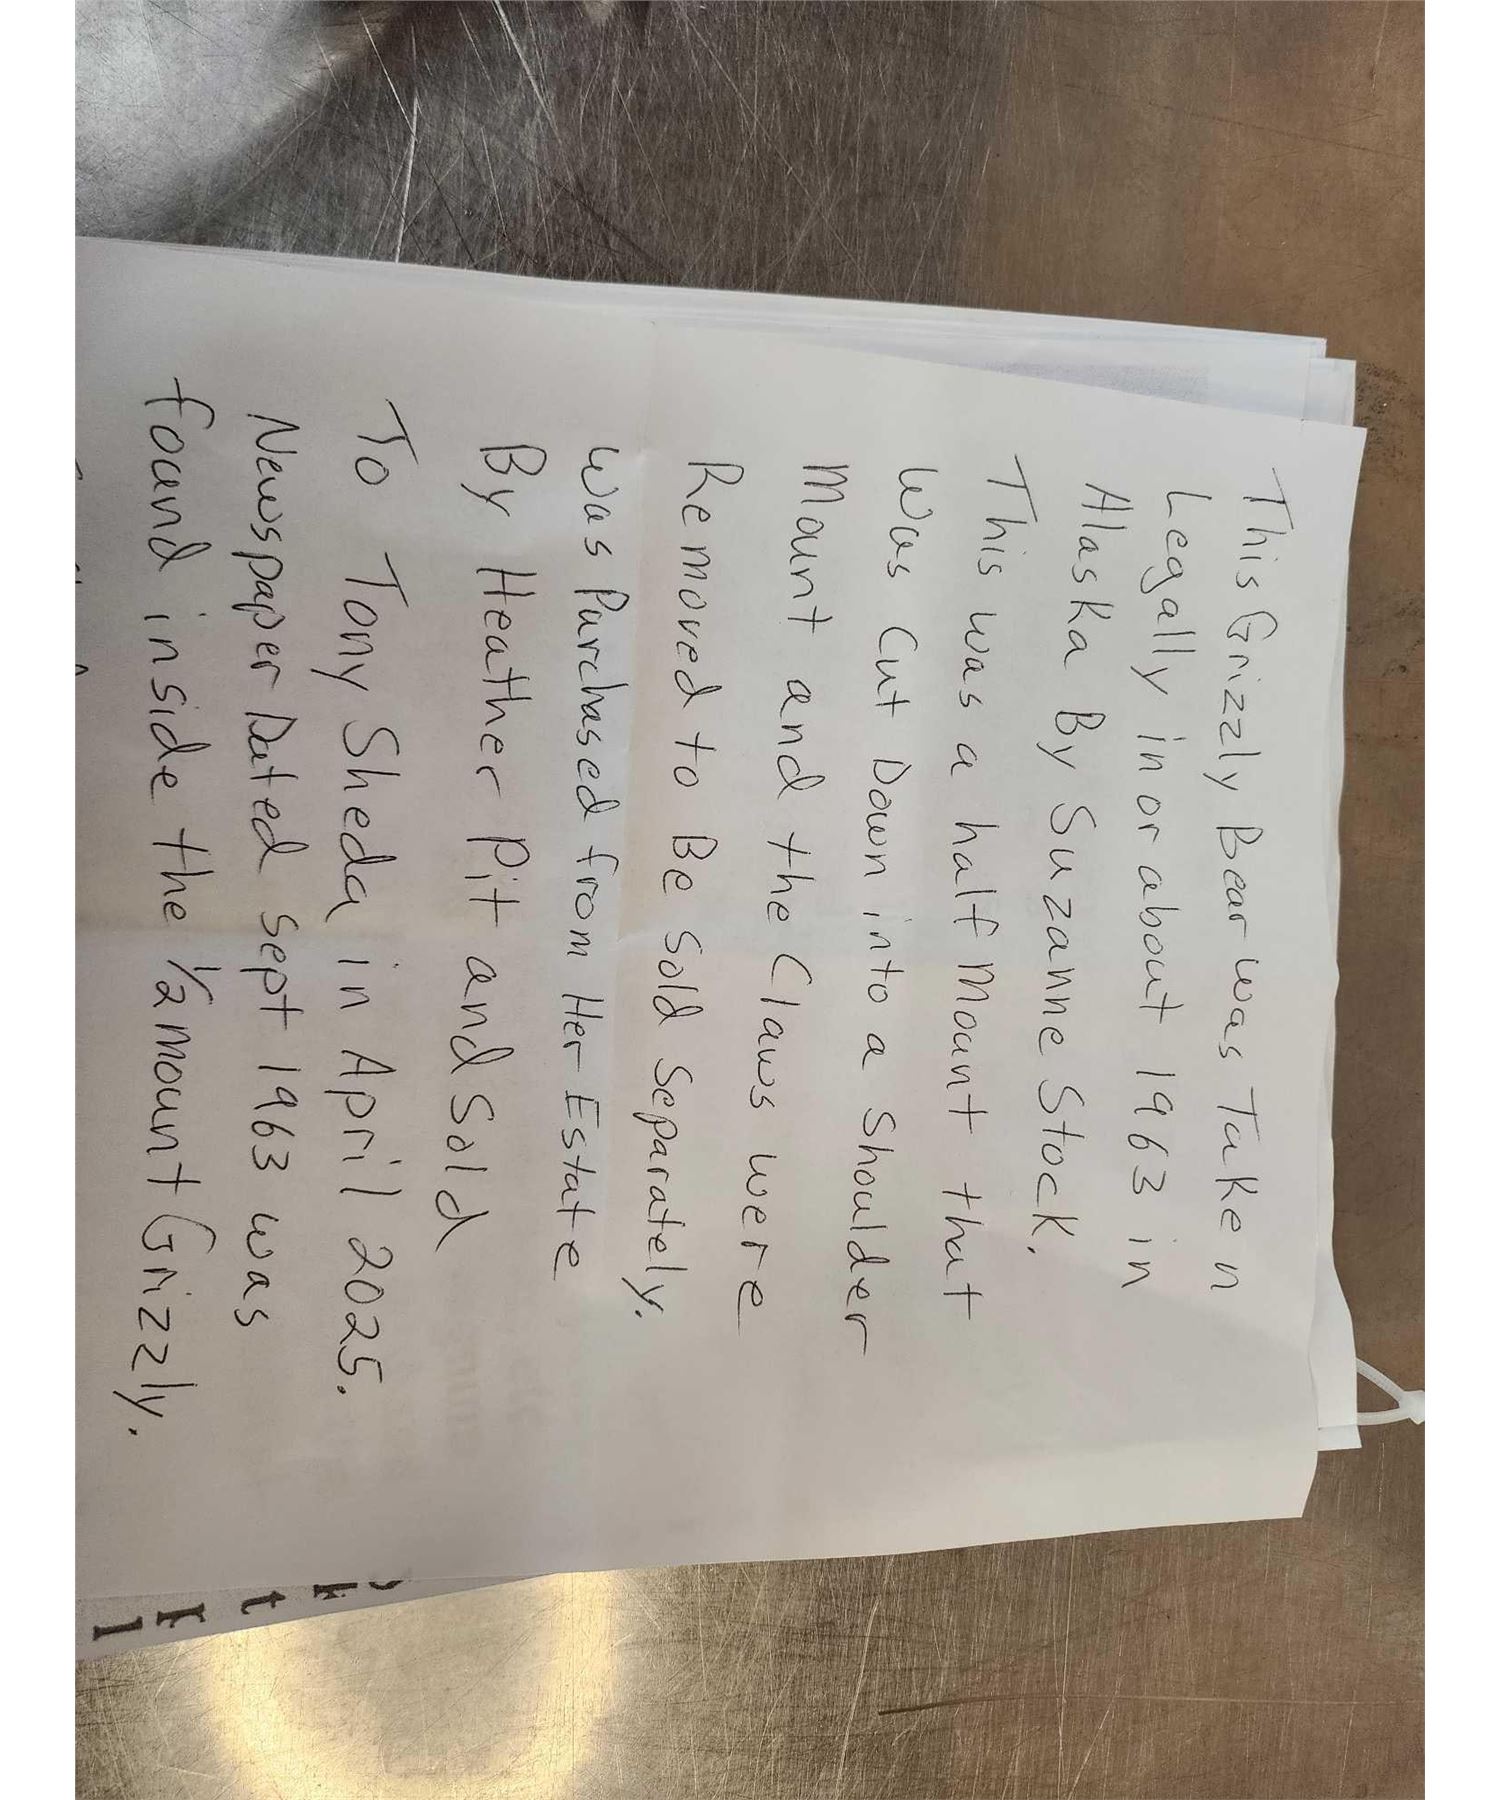 This Grizzly Bear was Taken
Legally in or about 1963 in
Alaska By Suzanne Stock.
This was a half Mount that
was Cut Down into a Shoulder
Mount and the Claws were
Removed to Be Sold Separately.
was Purchased from Her Estate
By Heather Pit and Sold
To Tony Sheda in April 2025.
Newspaper Dated Sept 1963 was
found inside the 1/2 mount Grizzly.